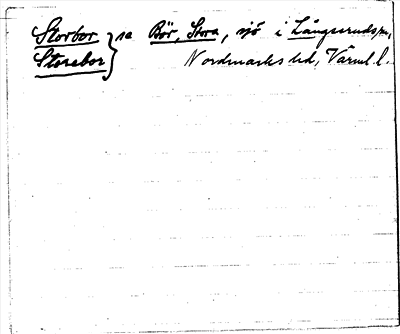 Storbor } se Bör, Stora, sjö i Långserudsm,
Storebor } Nordmarks hd, Värml. l.